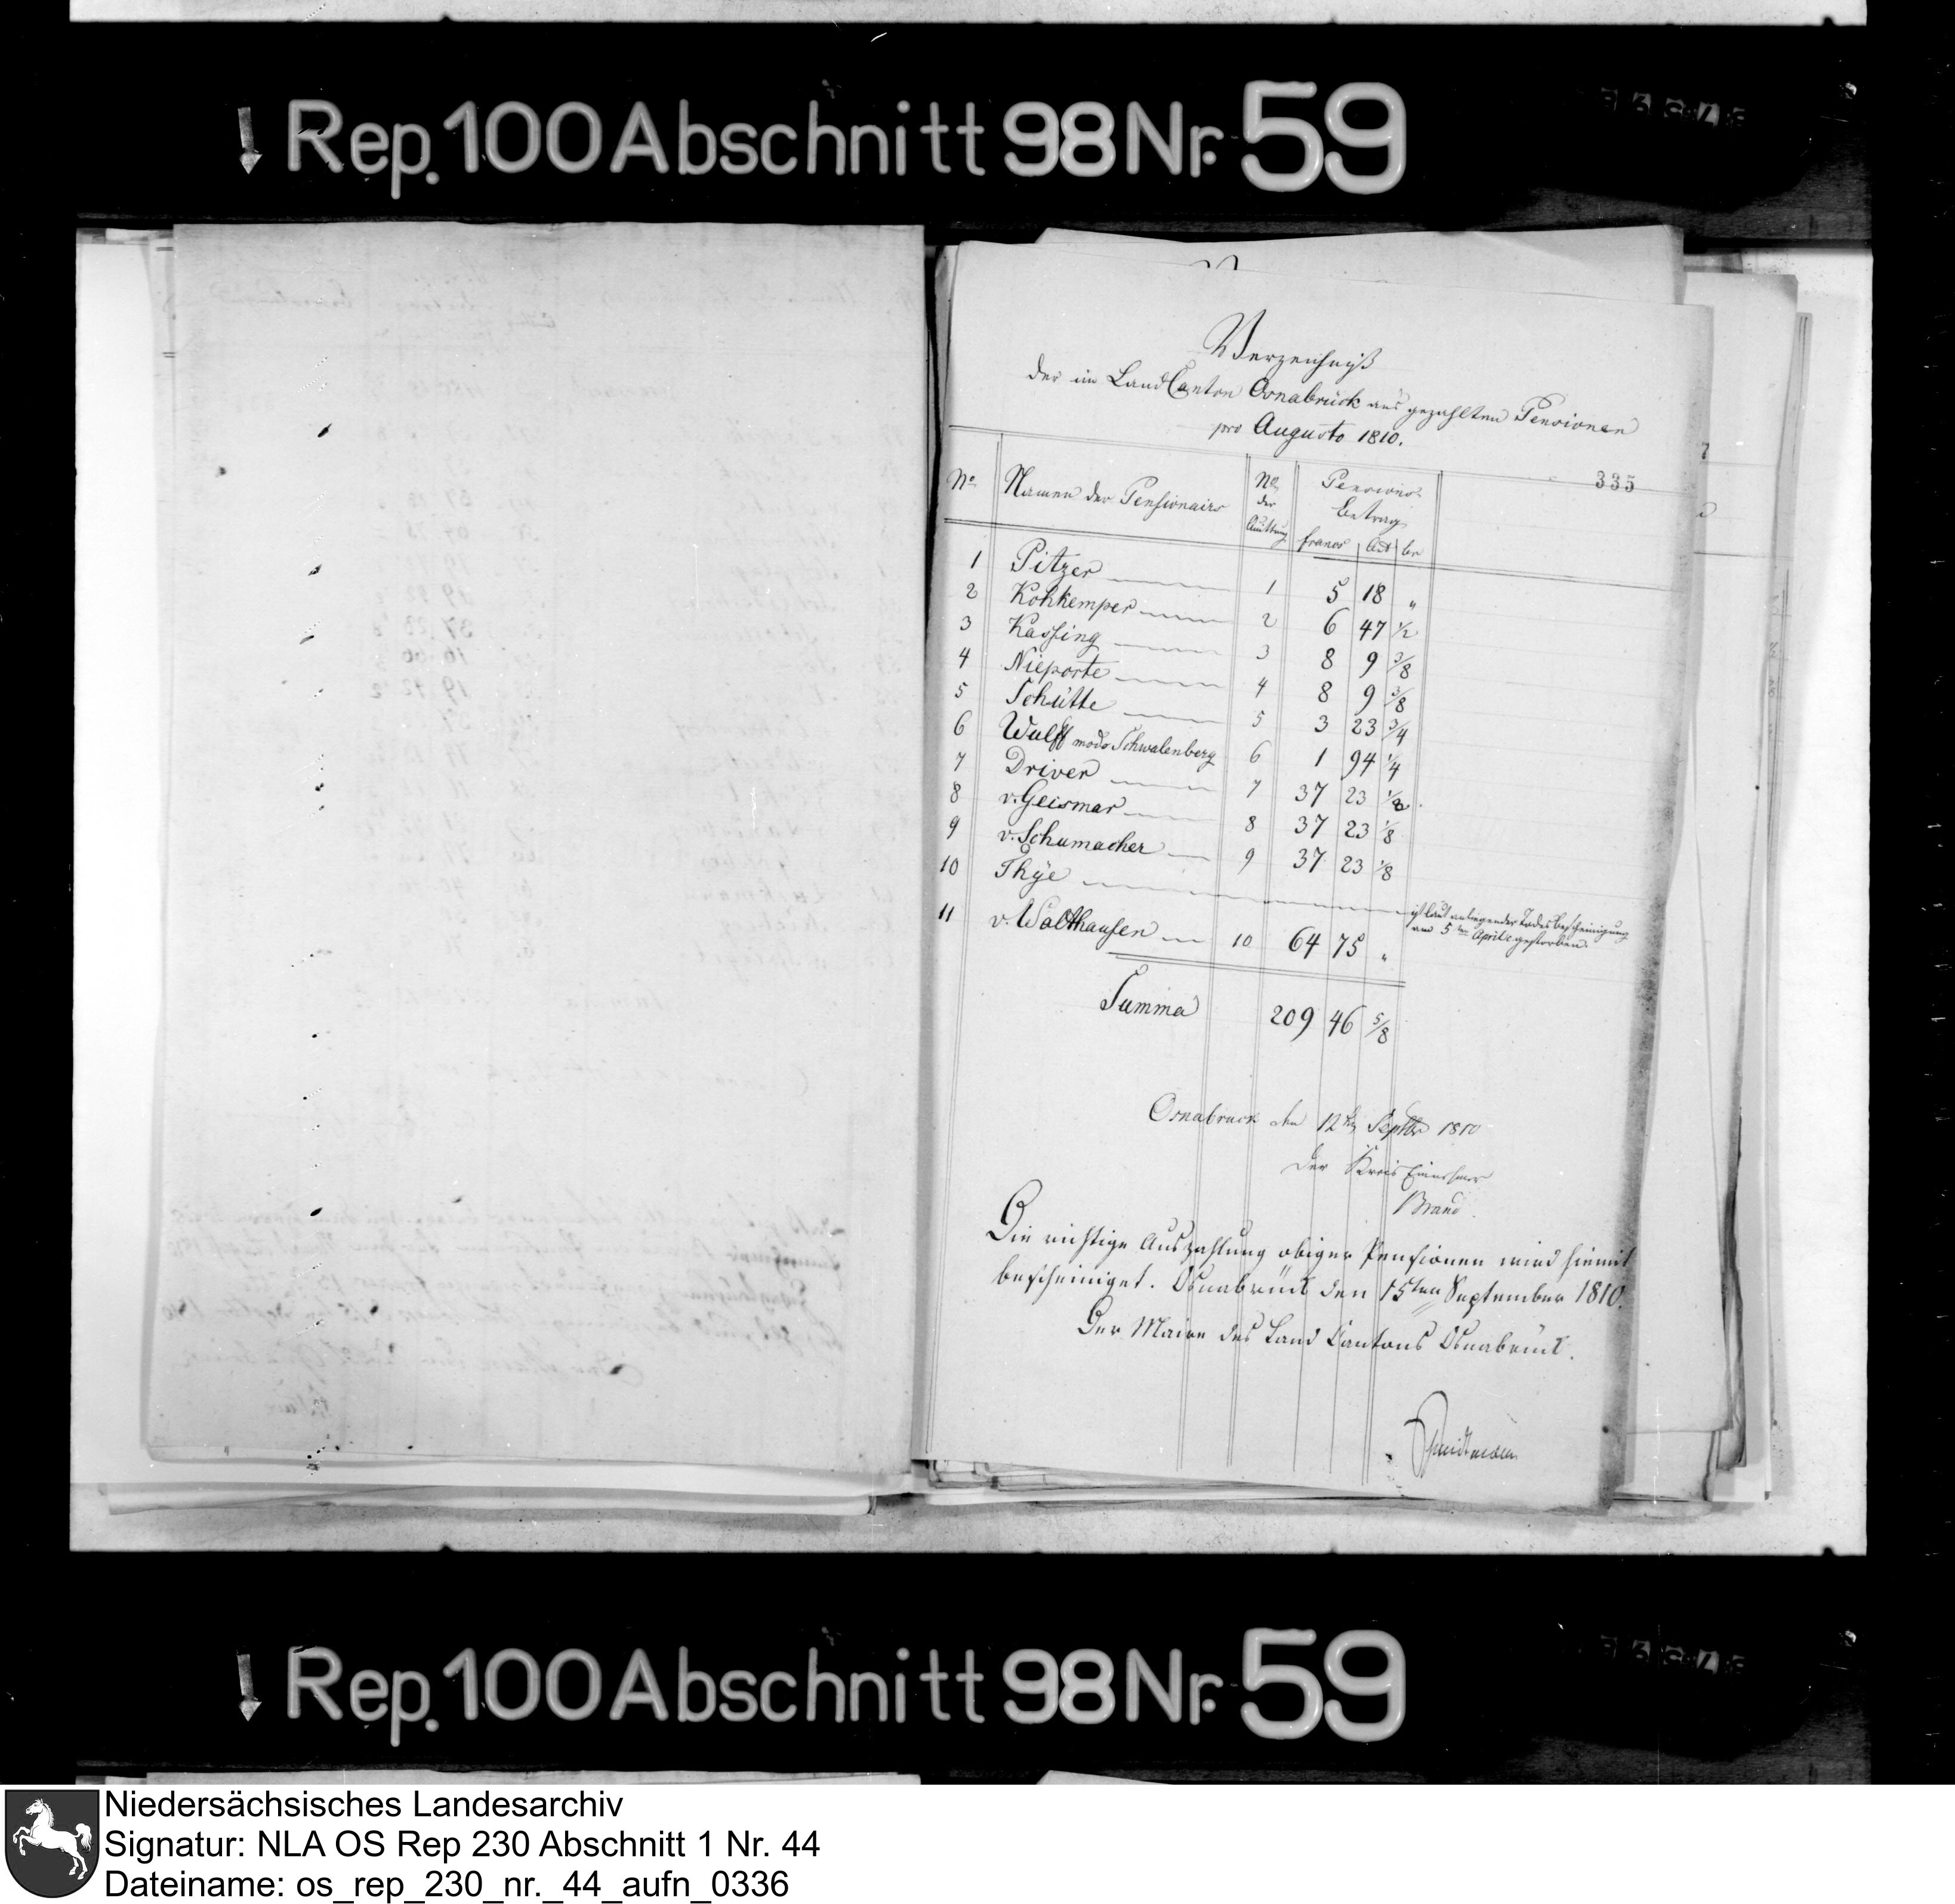 Rep. 100 Abschnitt 98 Nr. 59
Verzeichniß
der im Land Canton Osnabrück aus gezahlten Pensionen
pro Augusto 1810.
335
No. Namen der Pensionairs No. der Quittung Pensions betrag
francs Cent
1 Pitzer 1 5 18 "
2 Kohkemper 2 6 47 1/2
3 Kassing 3 8 9 3/8
4 Nieporte 4 8 9 3/8
5 Schütte 5 3 23 3/4
6 Wulff modo Schwalenberg 6 1 94 1/4
7 Driver 7 37 23 1/8
8 v. Geismar 8 37 23 1/8
9 v. Schumacher 9 37 23 1/8
10 Thije ist laut anliegender Todes bescheinigung
am 5ten April gestorben.
11 v. Walthausen 10 64 75 "
Summa 209 46 5/8
Osnabruck den 12ten Septbr 1810
Der Kreis Einnehmer
Brand
Die richtige Auszahlung obiger Pensionen wird hiemit
bescheiniget. Osnabrück den 15ten September 1810.
Der Maire des Land Cantons Osnabrück.
Rep. 100 Abschnitt 98 Nr. 59
Niedersächsisches Landesarchiv
Signatur: NLA OS Rep 230 Abschnitt 1 Nr. 44
Dateiname: os_rep_230_nr._44_aufn_0336